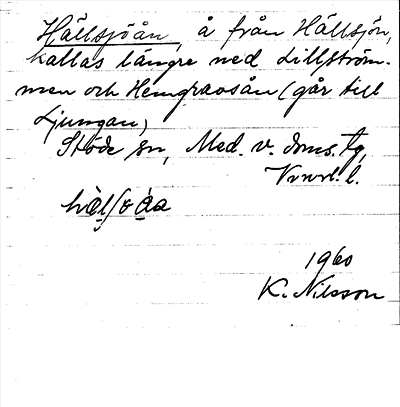 Hällsjöån, å från Hällsjön,
kallas längre ned Lillström-
men och Hemgravsån (går till
Ljungan)
Stöde sn, Med. v. doms. tg,
Vnrrl. l.
1960
K. Nilsson